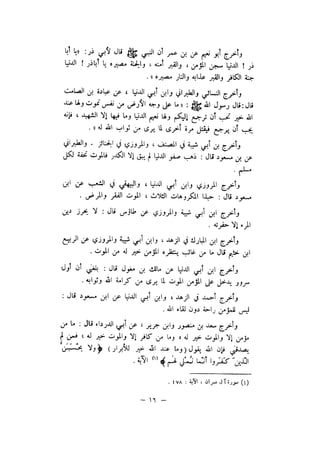 وأخرج أبو نعيم عن بن عمر أن النبي ﷺ قال لأبي ذر : « يا أبا
ذر ! الدنيا سجن المؤمن ، والقبر أمنه ، والجنة مصيره يا أباذر ! الدنيا
جنة الكافر والقبر عذابه والنار مصيره » .
وأخرج النسائي والطبراني وابن أبي الدنيا ، عن عبادة بن الصامت
قال : قال رسول الله ﷺ : « ما على وجه الأرض من نفس تموت ولها عند
الله خير تحب أن ترجع إليكم ولها نعيم الدنيا وما فيها إلا الشهيد ، فإنه
يحب أن يرجع فيقتل مرة أخرى لما يرى من ثواب الله له » .
وأخرج ابن أبي شيبة في المصنف ، والمروزي في الجنائز . والطبراني
عن بن مسعود قال : ذهب صفو الدنيا فلم يبق إلا الكدر فالموت تحفة لكل
مسلم .
وأخرج المروزي وابن أبي الدنيا ، والبيهقي في الشعب عن ابن
مسعود قال : حبذا المكروهات الثلاث ، الموت الفقر والمرض .
وأخرج ابن أبي شيبة والمروزي عن طاؤس قال : لا يحرز دين
المرء إلا حفرته .
وأخرج ابن المبارك في الزهد ، وابن أبي شيبة والمروزي عن الربيع
ابن خثيم قال ما من غائب ينتظره المؤمن خير له من الموت .
وأخرج ابن أبي الدنيا عن مالك بن مغول قال : بلغني أن أول
سرور يدخل على المؤمن الموت لما يرى من كرامة الله وثوابه .
وأخرج أحمد في الزهد ، وابن أبي الدنيا عن ابن مسعود قال :
ليس للمؤمن راحة دون لقاء الله .
وأخرج سعد بن منصور وابن جرير ، عن أبي الدرداء قال : ما من
مؤمن إلا والموت خير له وما من كافر إلا والموت خير له ، فمن لم
يصدقني فإن الله يقول ( وما عند الله خير للأبرار ) ﴿ ولا يحسبنّ
الذين كفروا أنّما نُملي لهم ﴾ (١) الآية .
(٤) سورة آل عمران ، الآية : ١٧٨ .
— ١٦ —